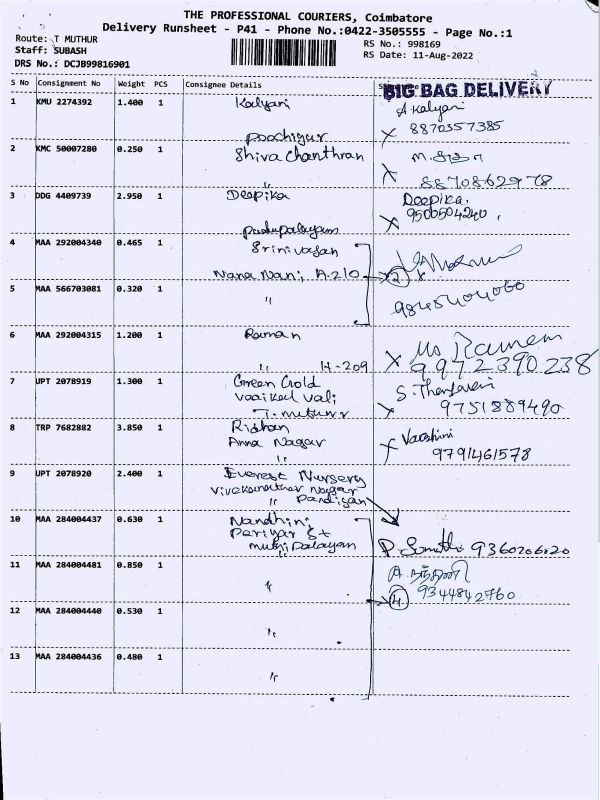 THE PROFESSIONAL COURIERS, Coimbatore
Delivery Runsheet - P41 - Phone No.:0422-3505555 - Page No.:1
Route: T MUTHUR
RS No.: 998169
Staff: SUBASH
RS Date: 11-Aug-2022
DRS No.: DCJB99816901
S No Consignment No Weight PCS Consignee Details
BIG BAG DELIVERY
1 KMU 2274392 1.400 1 Kalyani
A Kalyani
8870357385
Poochiyur
2 KMC 50007280 0.250 1 Shiva Chanthran
8870862978
3 DDG 4409739 2.950 1 Deepika
Deepika.
9500504240.
Pudupalayam
4 MAA 292004340 0.465 1 Srinivasan
Nana Nani, A-210
2
5 MAA 566703081 0.320 1 "
6 MAA 292004315 1.200 1 Raman
Ms Ramem
" H-209
9972390238
7 UPT 2078919 1.300 1 Green Gold
Vaaikal Vali
T. Muthur
9751889490
8 TRP 7682882 3.850 1 Ridhan
Anna Nagar
"
Varshini
9791461578
9 UPT 2078920 2.400 1 Everest Nursery
Nagar
" Pandiyan
10 MAA 284004437 0.630 1 Nandhini
Periyar St
Palayam
9360206120
11 MAA 284004481 0.850 1 "
9344842760
4
12 MAA 284004440 0.530 1
"
13 MAA 284004436 0.480 1
"